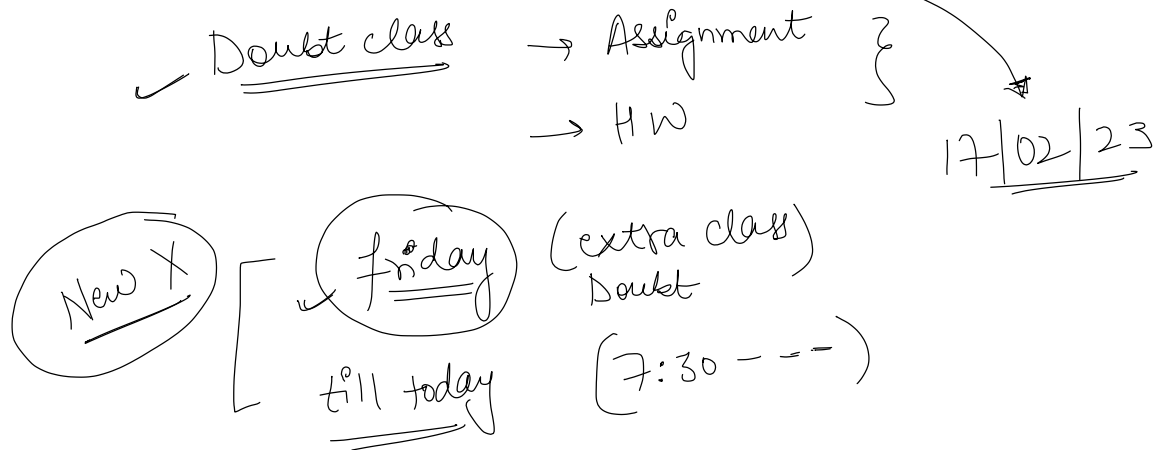 Doubt class → Assignment
→ HW
17/02/23
New X
friday (extra class)
Doubt
till today (7:30 ----)